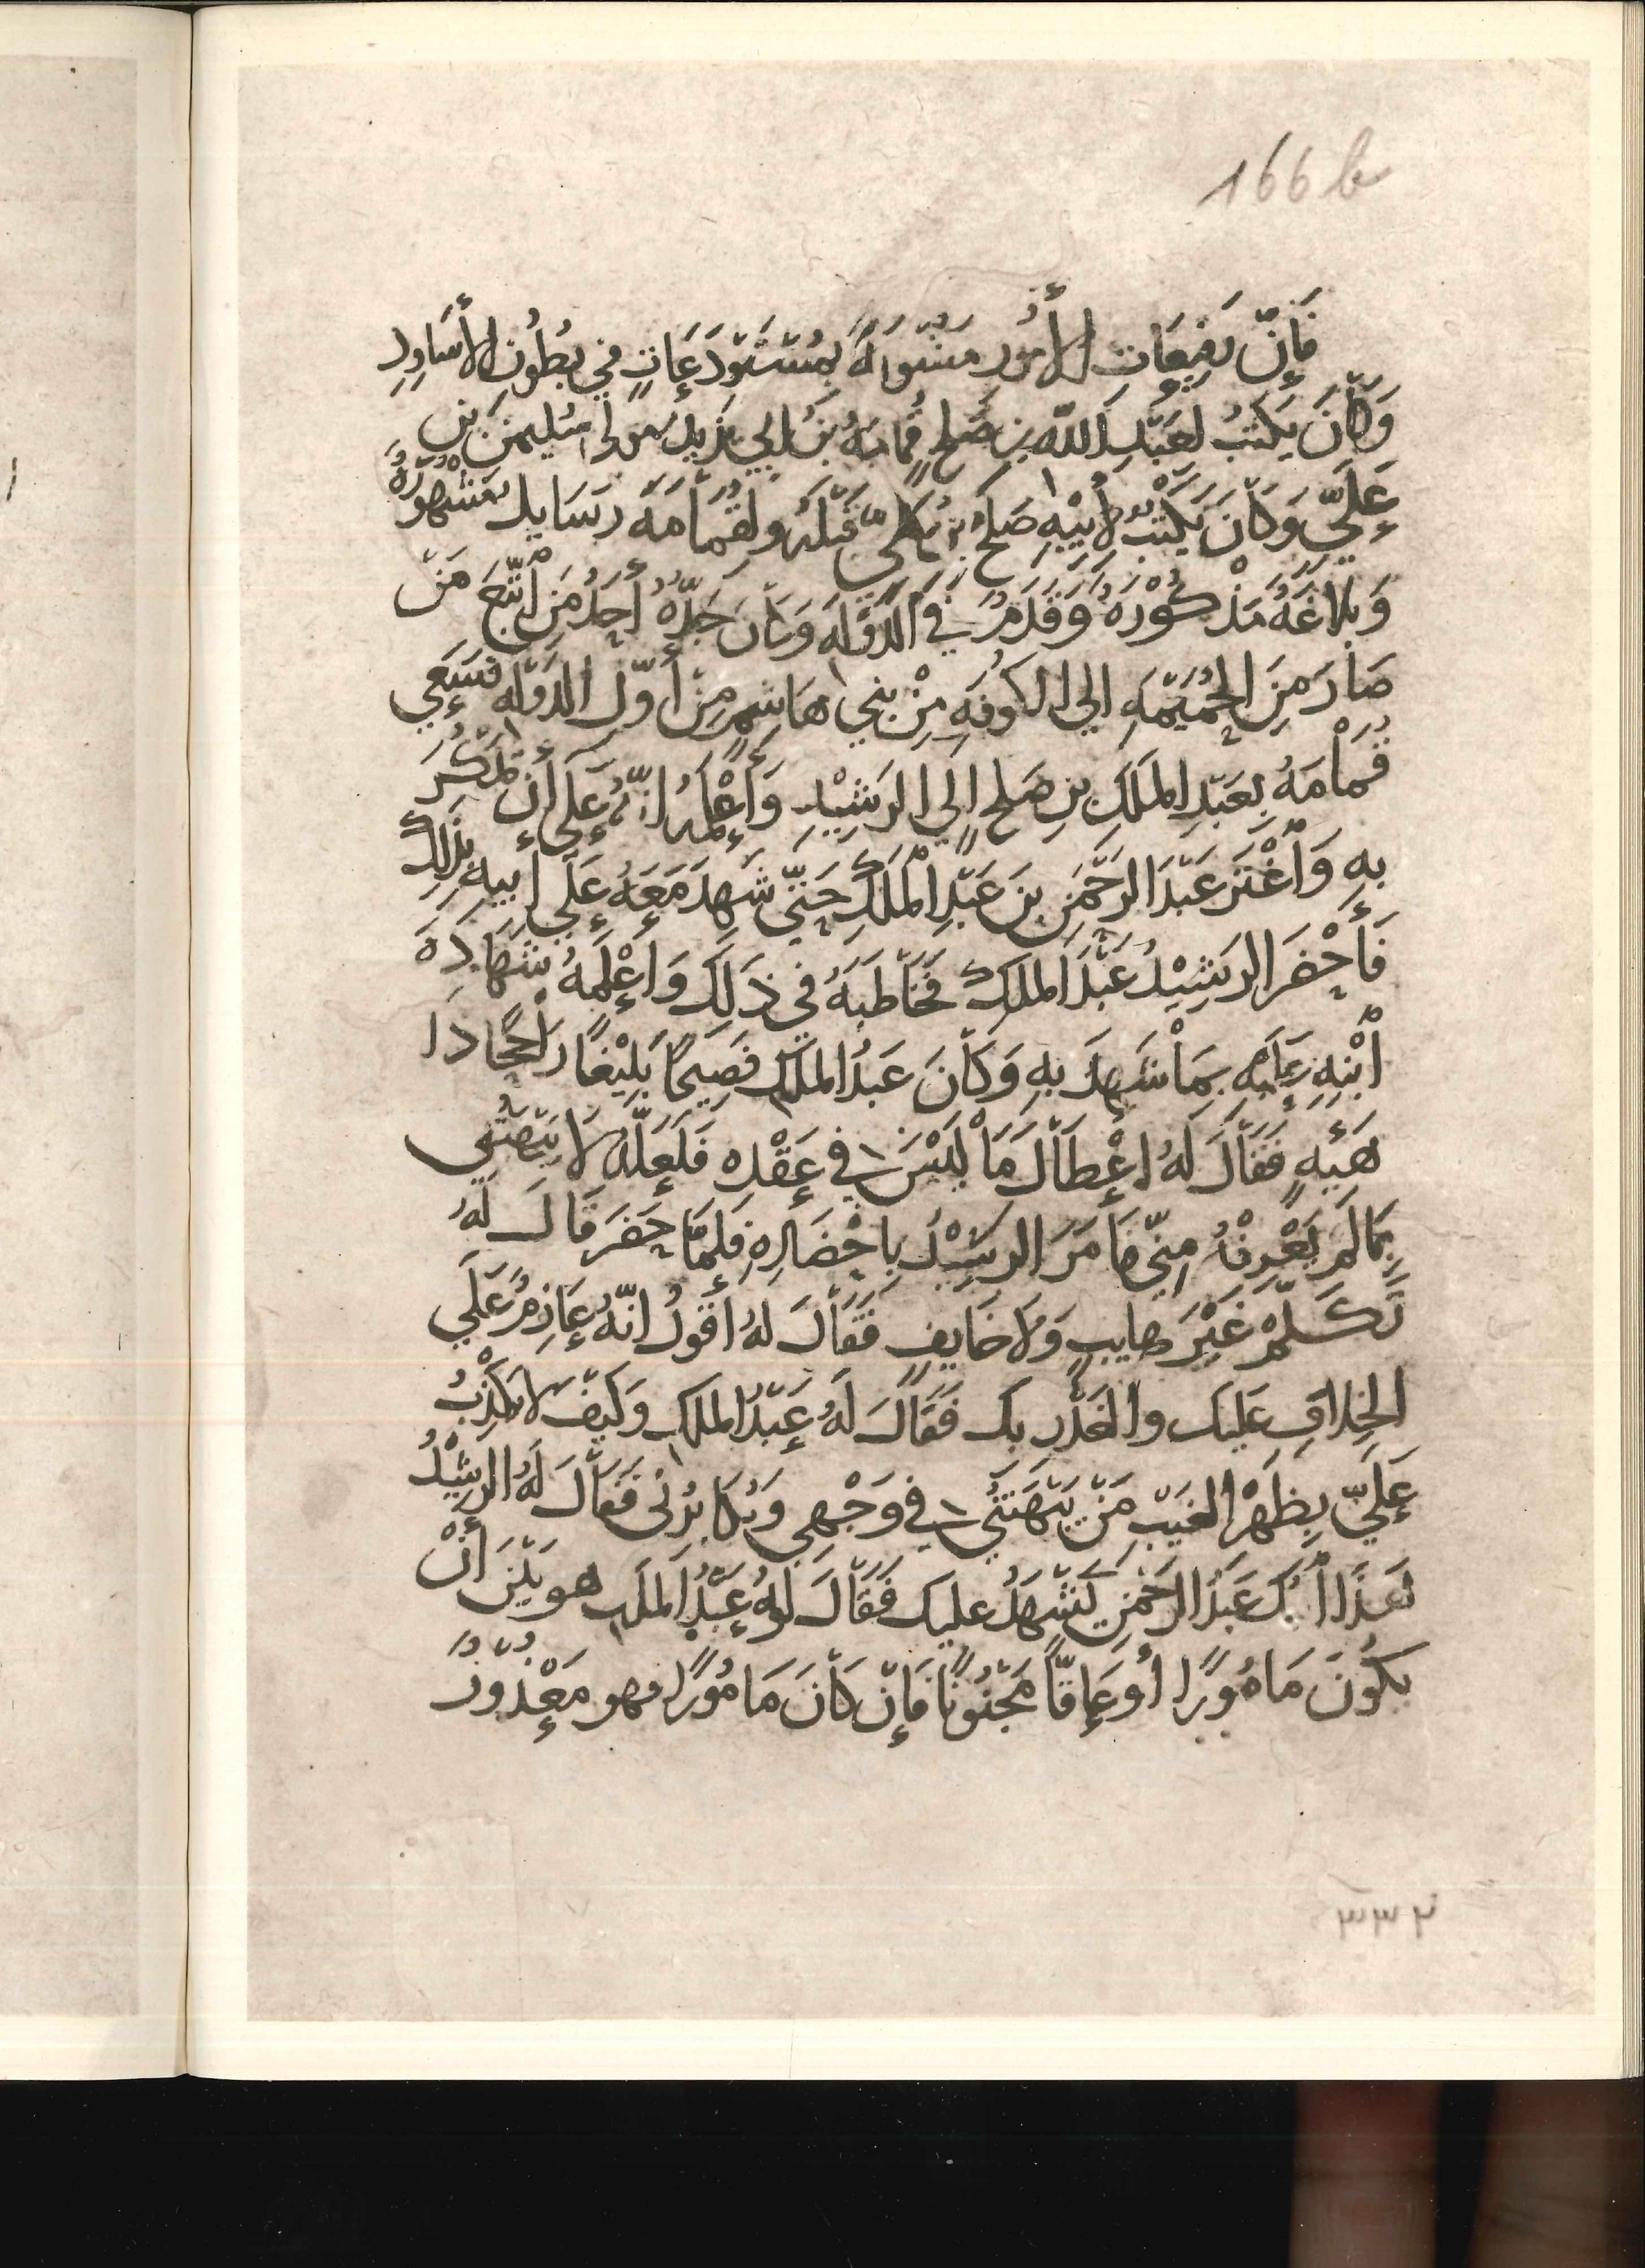 166b
فَإِنَّ رَفِيعَاتِ الأُمُورِ مَشُوبَةٌ بِمُسْتَوْدَعَاتٍ في بُطُونِ الأَسَاوِدِ
وَكَانَ يَكْتُبُ لعَبْدِ اللّٰه بن صَلحٍ قُمَامَةُ بنُ ابي يزيد مولى سُليمنَ بن
عَلَيّ وَكَانَ يَكْتُبُ لأَبِيْهِ صَلح بن عَلَيّ قَبْلَهُ ولقُمَامَهَ رسَايل مَشْهُورَةٌ
وَبَلاغَةٌ مَذْكُوْرَةٌ وَقَدَمٌ في الدَوْلَهِ وَكَانَ جَدّهُ أحَدُ مَنِ
صَارَ مِنَ الحُمَيْمَهِ الى الكوفَهِ مِنْ بني هَاشِم مِنْ أوّل الدَوْلَه فسَعَى
قُمَامَهُ بعَبْدِ المَلَكِ بن صَلح إلي الرَشِيْدِ وَأعْلمَهُ انّهُ عَلى أن يَمْكُرَ
بهِ وَاغْتَرَّ عَبْدَ الرَحْمَن بنَ عَبْدِ المَلَكِ حَتّى شَهِدَ مَعَهُ عَلَى أبيهِ بِذَلِكَ
فَأَحْضَرَ الرَشِيْدُ عَبْدَ المَلَكِ فَخَاطَبَهُ في ذَلَكَ وَاعْلَمَهُ بشَهَادَةَ
ابْنِهِ عَلَيْهِ بمَا شَهِدَ بهِ وَكَانَ عَبْدُ المَلَك فَصِيحًا بَلِيْغًا راجحًا ذا
هَيْبَهٍ فَقَالَ لَهُ اعْطَاكَ مَا لَيْسَ في عَقْدِهِ فَلَعَلَّهُ لاَ يَبْهَتُني
بِمَا لَم يَعْرِفْهُ مِنّي فَامَرَ الرشِيْدُ بِإحْضَارِهِ فَلَمّا حَضَرَ قَالَ لَهُ
تَكَلّمْ غَيْرَ هَايبٍ وَلا خَايفٍ فَقَالَ لهُ أقُولُ انّهُ عَازمٌ عَلَى
الخِلافِ عَلَيك والغَدْرِ بك فَقَالَ لَهُ عَبْدُ المَلَك وَكيْفَ لا يَكْذِبُ
عَلَيّ بِظَهْرِ الغَيْبِ مَنْ يَبْهَتُني في وَجْهِي وَيُكَابرُني فَقَالَ لَهُ الرشِيْدُ
هَذَا ابنك عَبْدُ الرَحْمَن يَشْهَدُ عليك فَقَالَ لَهُ عَبْدُ المَلَك هو بَيْنَ أنْ
يكُونَ مَامُورًا أو عَاقًّا مَجْنُونًا فَإنْ كَانَ مَامُورًا فهو مَعْذُورٌ
٣٣٢